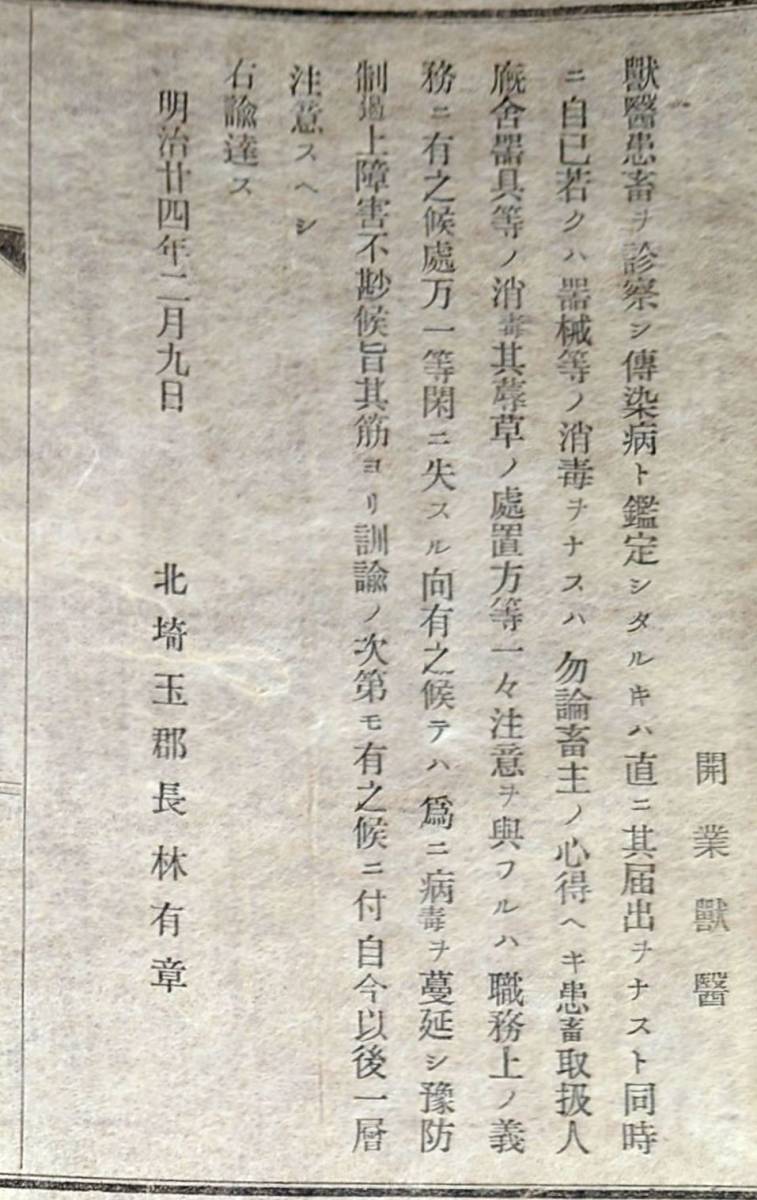 開業獸醫
獸醫患畜ヲ診察シ傳染病ト鑑定シタルキハ直ニ其届出ヲナスト同時
ニ自已若クハ器械等ノ消毒ヲナスハ勿論畜主ノ心得ヘキ患畜取扱人
廐舍器具等ノ消毒其蓐草ノ處置方等一々注意ヲ與フルハ職務上ノ義
務ニ有之候處万一等閑ニ失スル向有之候テハ爲ニ病毒ヲ蔓延シ豫防
制遏上障害不尠候旨其筋ヨリ訓諭ノ次第モ有之候ニ付自今以後一層
注意スヘシ
右諭達ス
明治廿四年二月九日
北埼玉郡長林有章